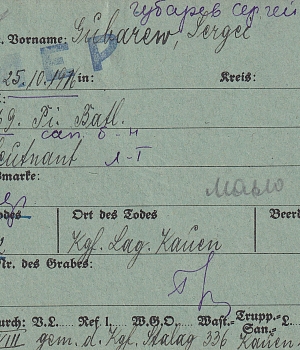 Губарев Сергей
Vorname: Gubarew, Sergei
25.10.19 in: Kreis:
Pi. Batl.
сап. б-н
Leutnant л-т
smarke:
odes Ort des Todes Beerd
Kgf. Lag. Kauen
Nr. des Grabes:
urch: V.L. Ref. I. W.G.O. Wast.- Trupp.-
San.-
VIII gem. d. Kgf. Stalag 336 Kauen